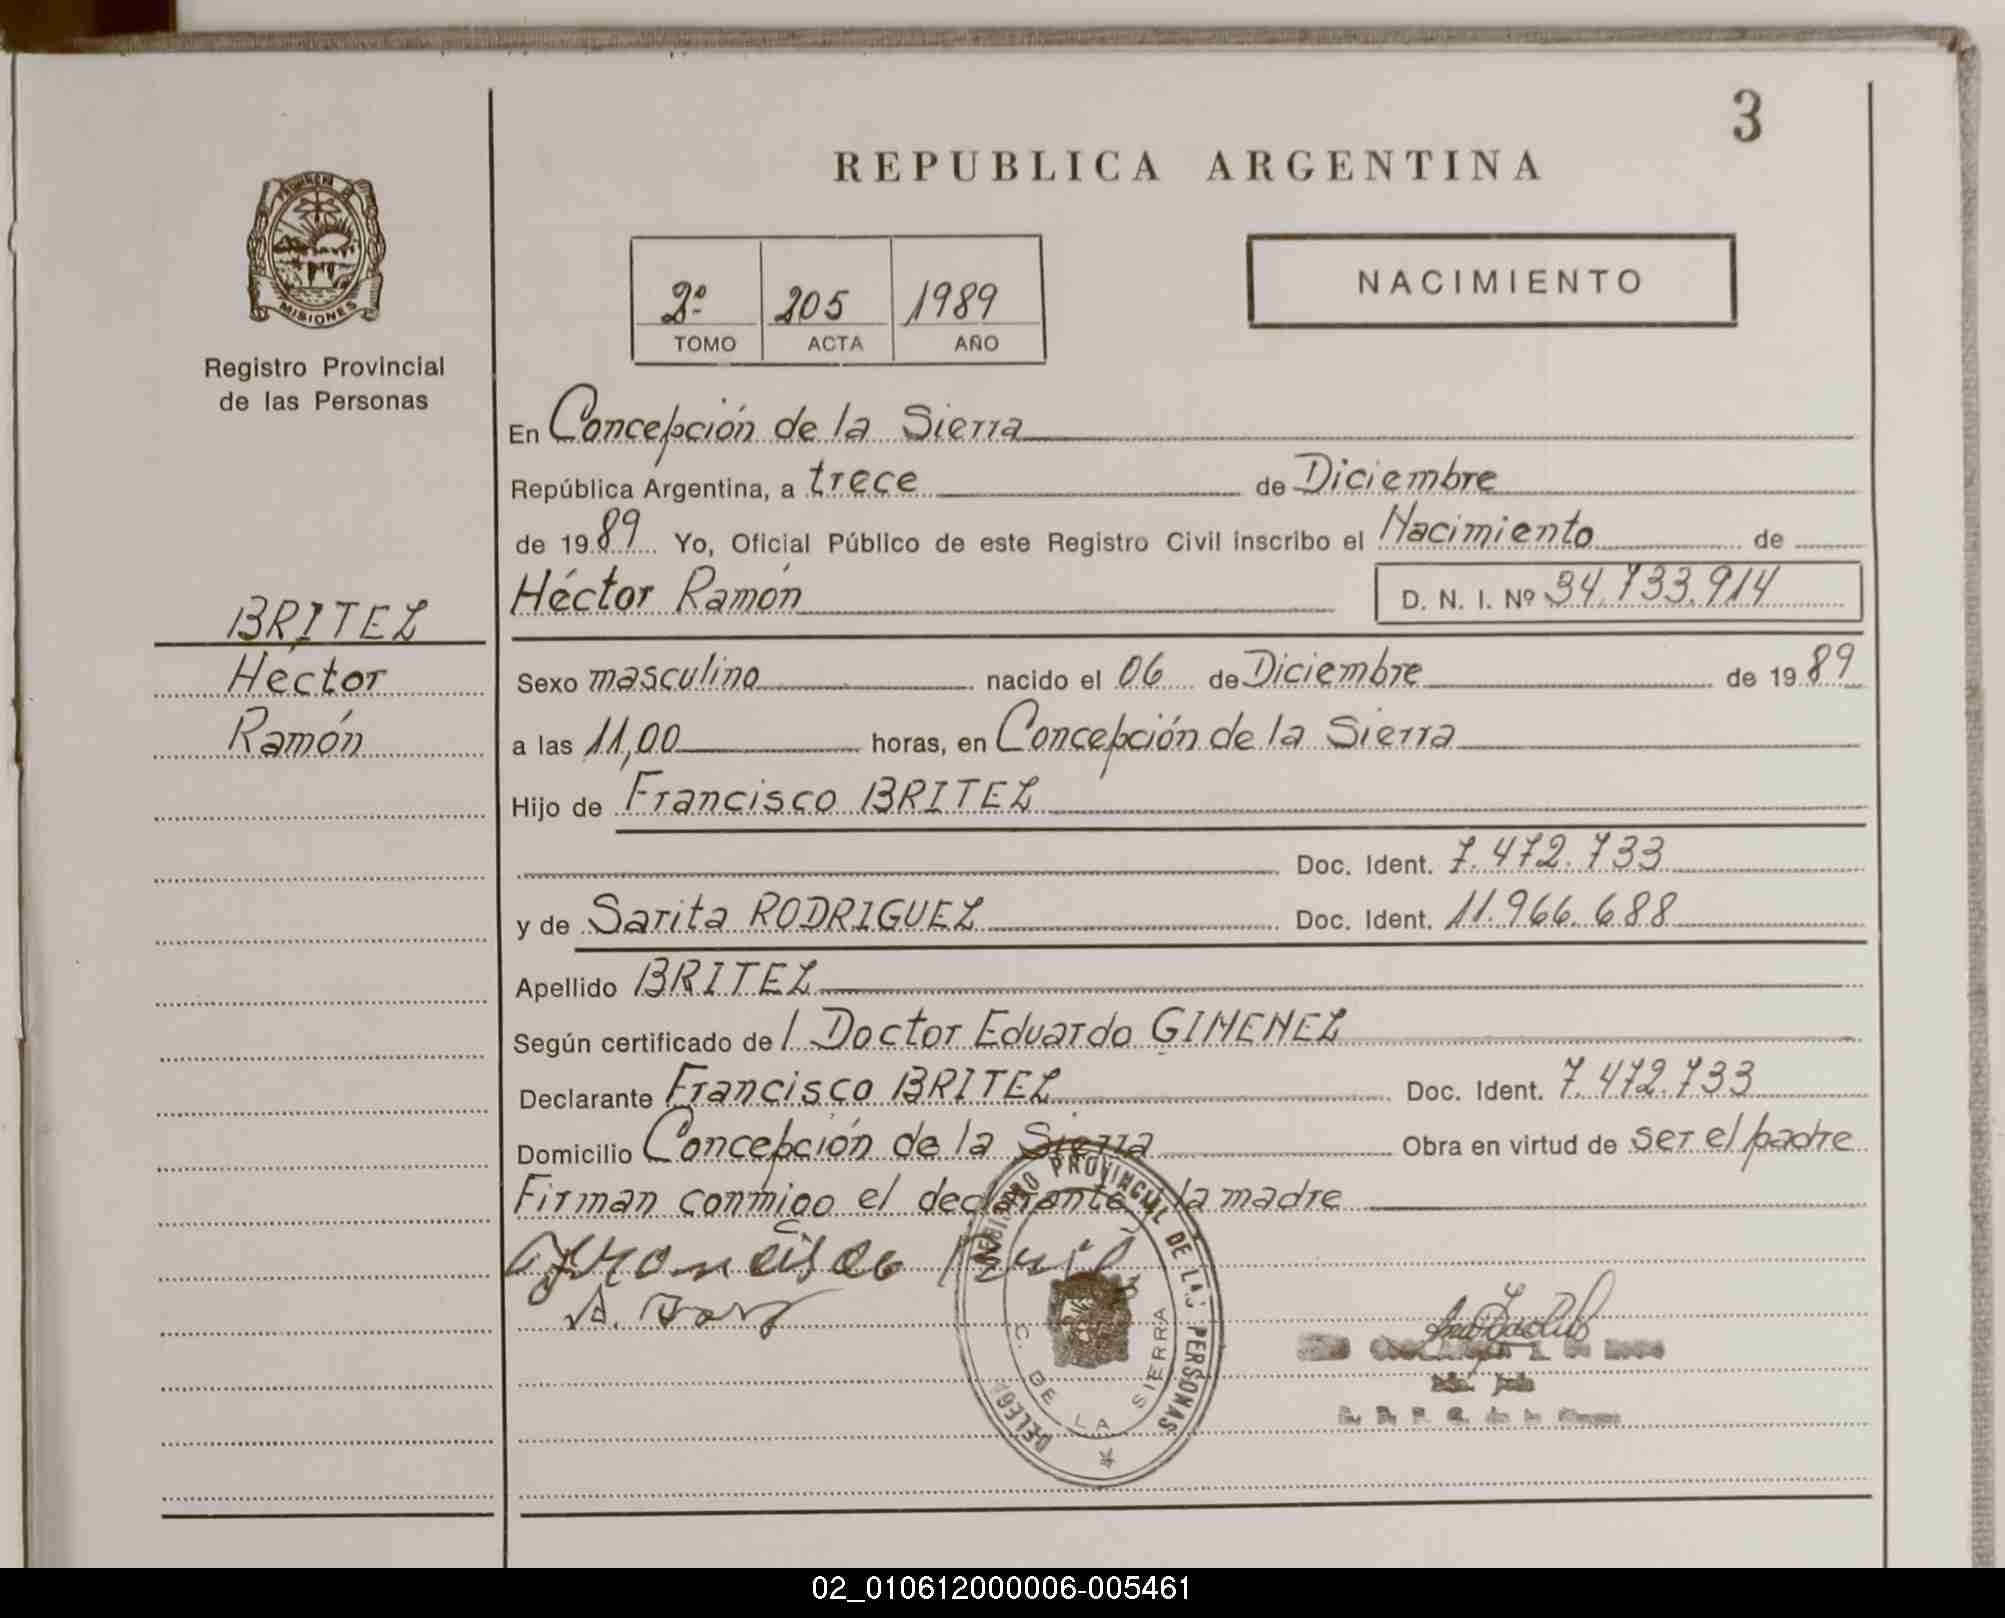 3
REPUBLICA ARGENTINA
MISIONES
Registro Provincial
de las Personas
2º 205 1989
TOMO ACTA AÑO
NACIMIENTO
En Concepción de la Sierra
República Argentina, a trece de Diciembre
de 1989 Yo, Oficial Público de este Registro Civil inscribo el Nacimiento de
Héctor Ramón D. N. I. Nº 34.733.914
BRITEZ
Héctor
Ramón
Sexo masculino nacido el 06 de Diciembre de 1989
a las 11,00 horas, en Concepción de la Sierra
Hijo de Francisco BRITEZ
Doc. Ident. 7.472.733
y de Sarita RODRIGUEZ Doc. Ident. 11.966.688
Apellido BRITEZ
Según certificado del Doctor Eduardo GIMENEZ
Declarante Francisco BRITEZ Doc. Ident. 7.472.733
Domicilio Concepción de la Sierra Obra en virtud de ser el padre
Firman conmigo el declarante y la madre
Francisco
REGISTRO PROVINCIAL DE LAS PERSONAS
DELEG
C. DE LA SIERRA
02_010612000006-005461